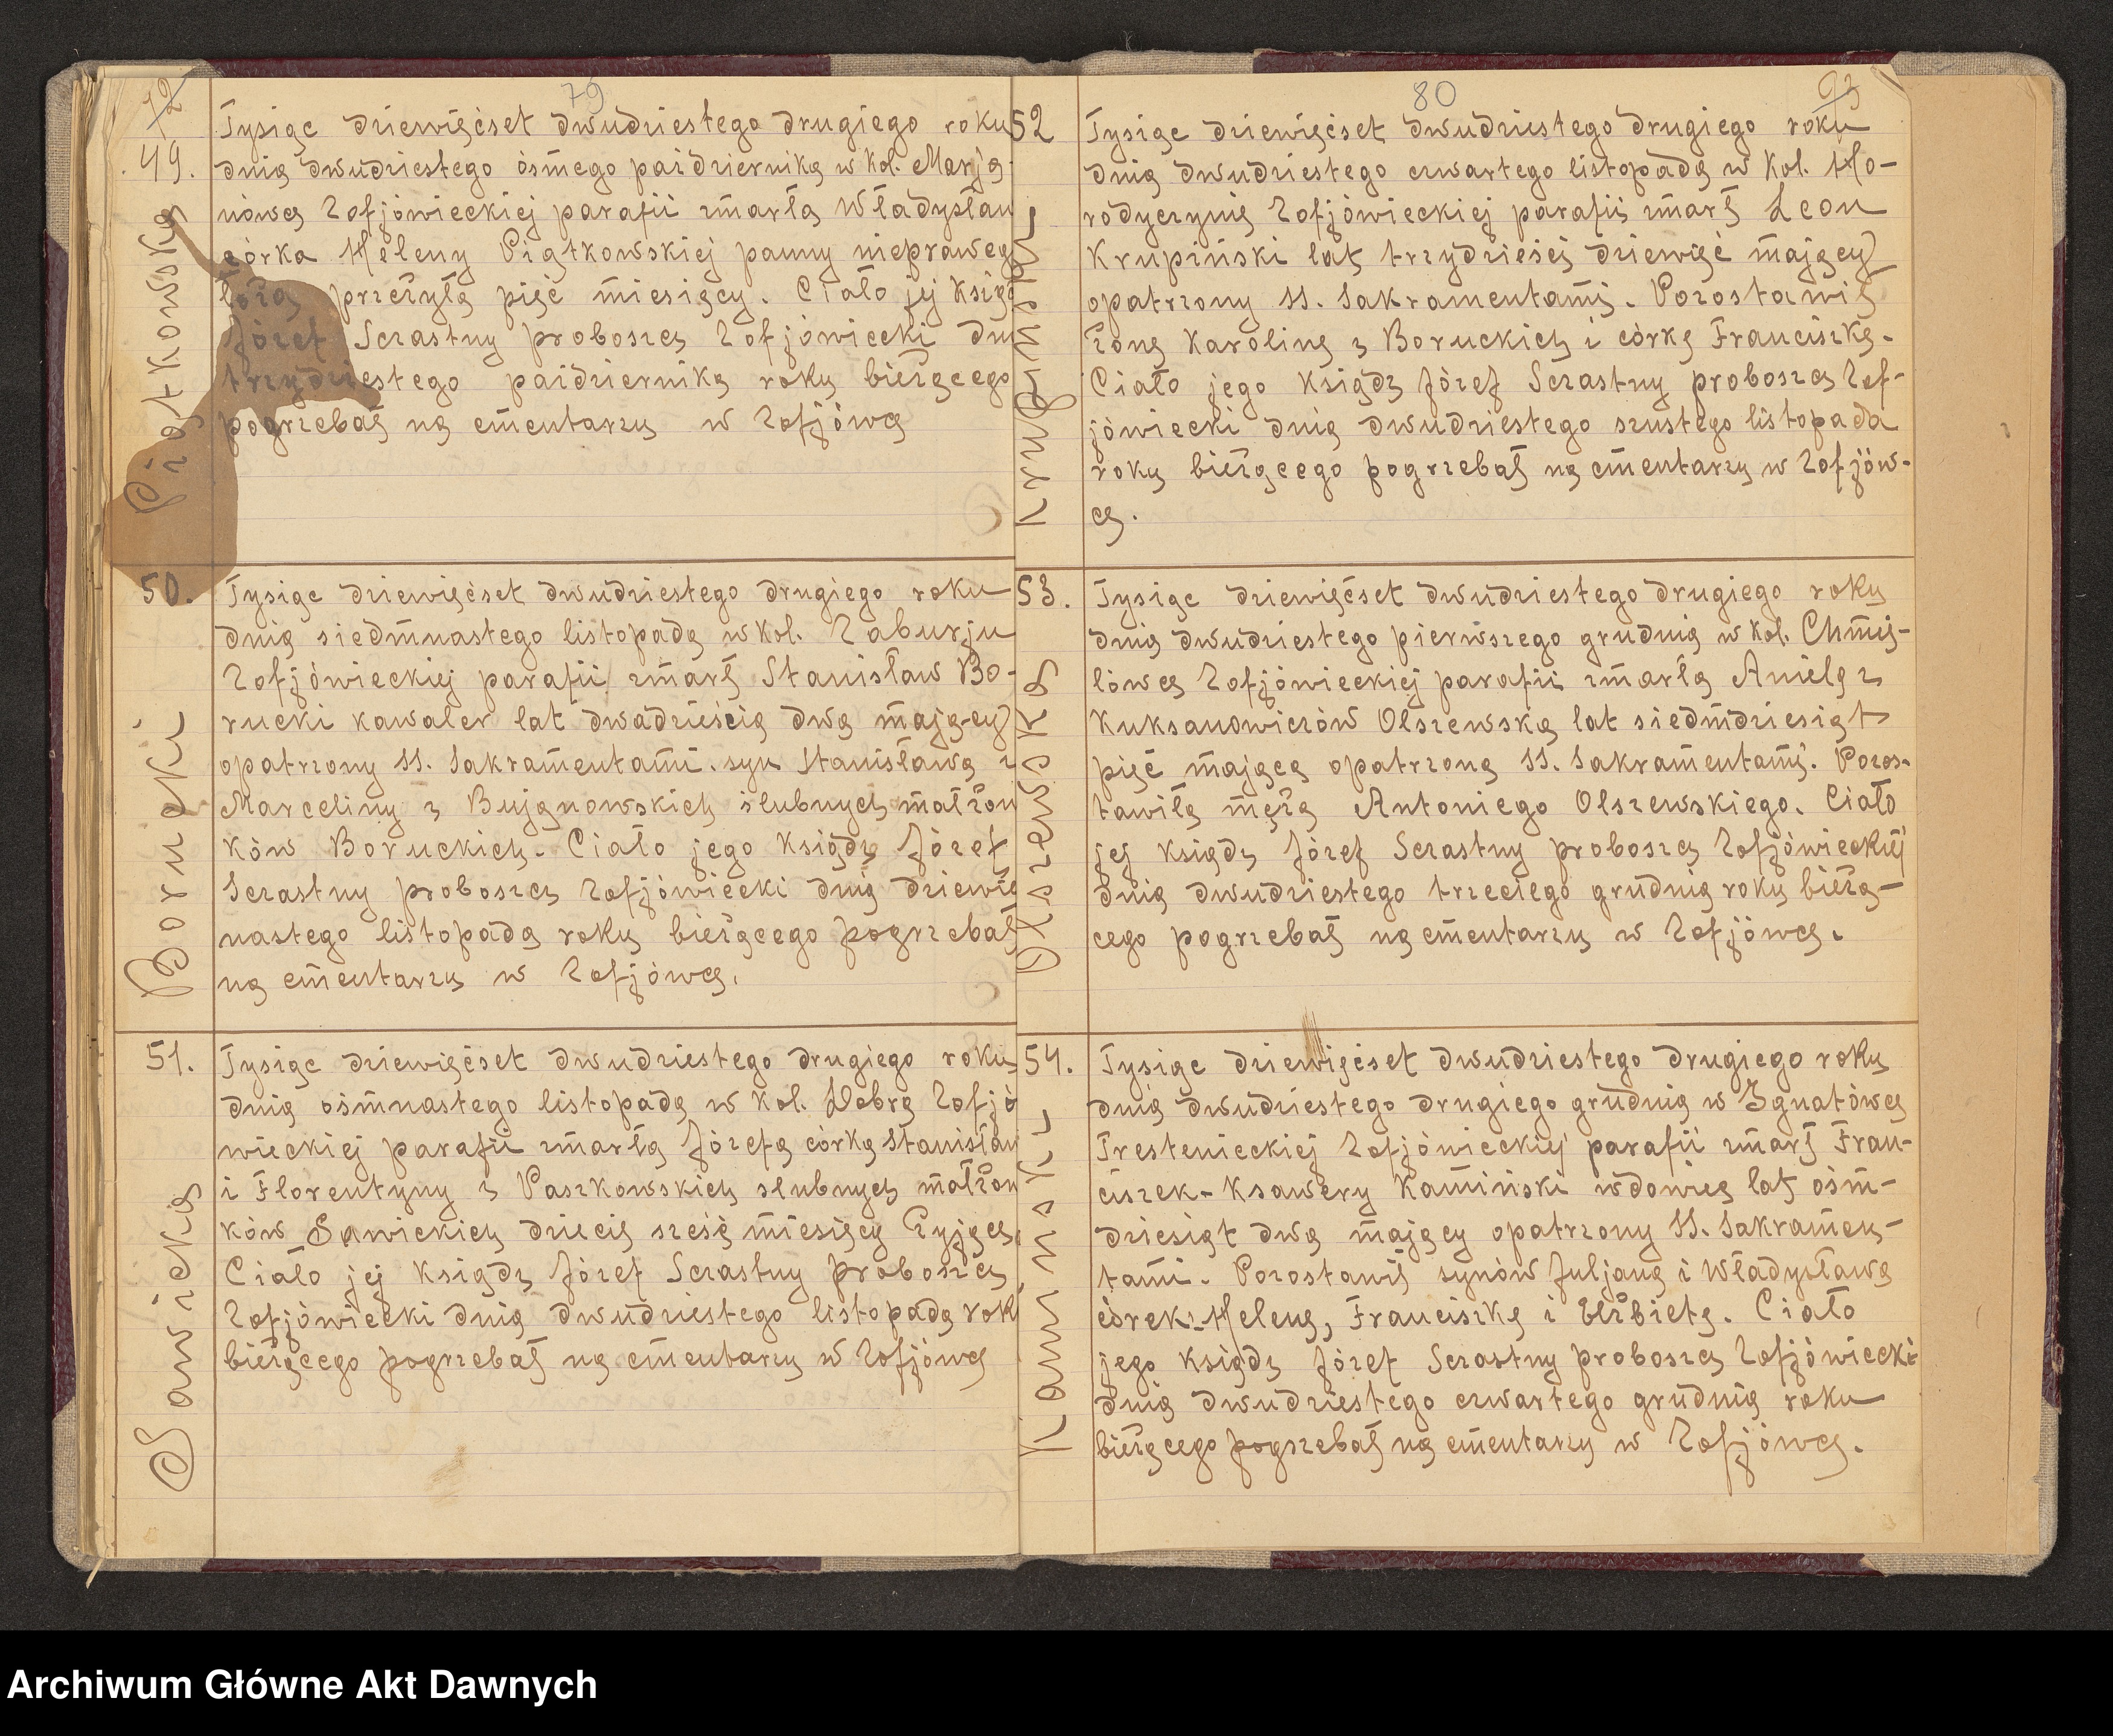 12
79
49.
Piątkowska
Tysiąc dziewięćset dwudziestego drugiego roku
dnia dwudziestego ósmego października w kol. Marja-
nówca Zofjówieckiej parafii zmarła Władysław
córka Heleny Piątkowskiej panny nieprawego
łoża przeżyła pięć miesięcy. Ciało jej Ksiądz
Józef Szczastny proboszcz Zofjówiecki dnia
trzydziestego października roku bieżącego
pogrzebał na cmentarzu w Zofjówce
50.
Borucki
Tysiąc dziewięćset dwudziestego drugiego roku
dnia siedmnastego listopada w kol. Zaburju
Zofjówieckiej parafii zmarł Stanisław Bo-
rucki kawaler lat dwadzieścia dwa mający
opatrzony SS. Sakramentami. syn Stanisława i
Marceliny z Bujanowskich ślubnych małżon
ków Boruckich. Ciało jego Ksiądz Józef
Szczastny proboszcz Zofjówiecki dnia dziewięt
nastego listopada roku bieżącego pogrzebał
na cmentarzu w Zofjówce.
51.
Sawicka
Tysiąc dziewięćset dwudziestego drugiego roku
dnia ośmnastego listopada w kol. Dobra Zofjó
wieckiej parafii zmarła Józefa córka Stanisław
i Florentyny z Paszkowskich slubnych małżon
ków Sawickich dziecię sześć miesięcy żyjące.
Ciało jej Ksiądz Józef Szczastny proboszcz
Zofjówiecki dnia dwudziestego listopada rok
bieżącego pogrzebał na cmentarzu w Zofjówce
80
93
52
Krupinski
Tysiąc dziewięćset dwudziestego drugiego roku
dnia dwudziestego czwartego listopada w kol. Ho-
rodyszczynie Zofjówieckiej parafii zmarł Leon
Krupiński lat trzydzieści dziewięć mający
opatrzony SS. Sakramentami. Pozostawił
żonę Karolinę z Boruckich i córkę Franciszkę.
Ciało jego Ksiądz Józef Szczastny proboszcz Zof-
jówiecki dnia dwudziestego szustego listopada
roku bieżącego pogrzebał na cmentarzu w Zofjów-
ce.
53.
Olszewska
Tysiąc dziewięćset dwudziestego drugiego roku
dnia dwudziestego pierwszego grudnia w kol. Chmie-
lówce Zofjówieckiej parafii zmarła Aniela z
Kuksanowiczów Olszewska lat siedmdziesiąt
pięć mająca opatrzona SS. Sakramentami. Pozos-
tawiła męża Antoniego Olszewskiego. Ciało
jej Ksiądz Józef Szczastny proboszcz Zofjówieckiej
dnia dwudziestego trzeciego grudnia roku bieżą-
cego pogrzebał na cmentarzu w Zofjówce.
54.
Kaminski
Tysiąc dziewięćset dwudziestego drugiego roku
dnia dwudziestego drugiego grudnia w Ignatówce
Trestenieckiej Zofjówieckiej parafii zmarł Fran-
ciszek-Ksawery Kamiński wdowiec lat ośm-
dziesiąt dwa mający opatrzony SS. Sakramen-
tami. Pozostawił synów Juljana i Władysława
córek-Helenę, Franciszkę i Elżbietę. Ciało
jego Ksiądz Józef Szczastny proboszcz Zofjówiecki
dnia dwudziestego czwartego grudnia roku
bieżącego pogrzebał na cmentarzu w Zofjówce.
Archiwum Główne Akt Dawnych